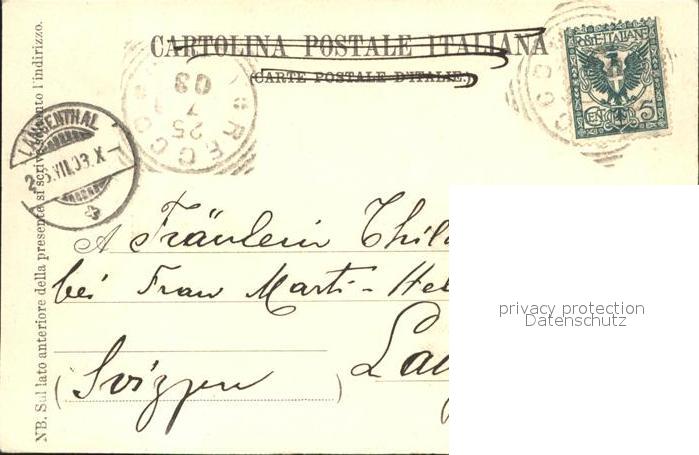 CARTOLINA POSTALE ITALIANA
(CARTE POSTALE D'ITALIE.)
RECCO
25
7
03
POSTE ITALIANE
CENT. 5
LANGENTHAL
VII.03.X
A Fräulein
bei Frau Marti-
(Svizzera)
NB. Sul lato anteriore della presente si scrive soltanto l'indirizzo.
privacy protection
Datenschutz